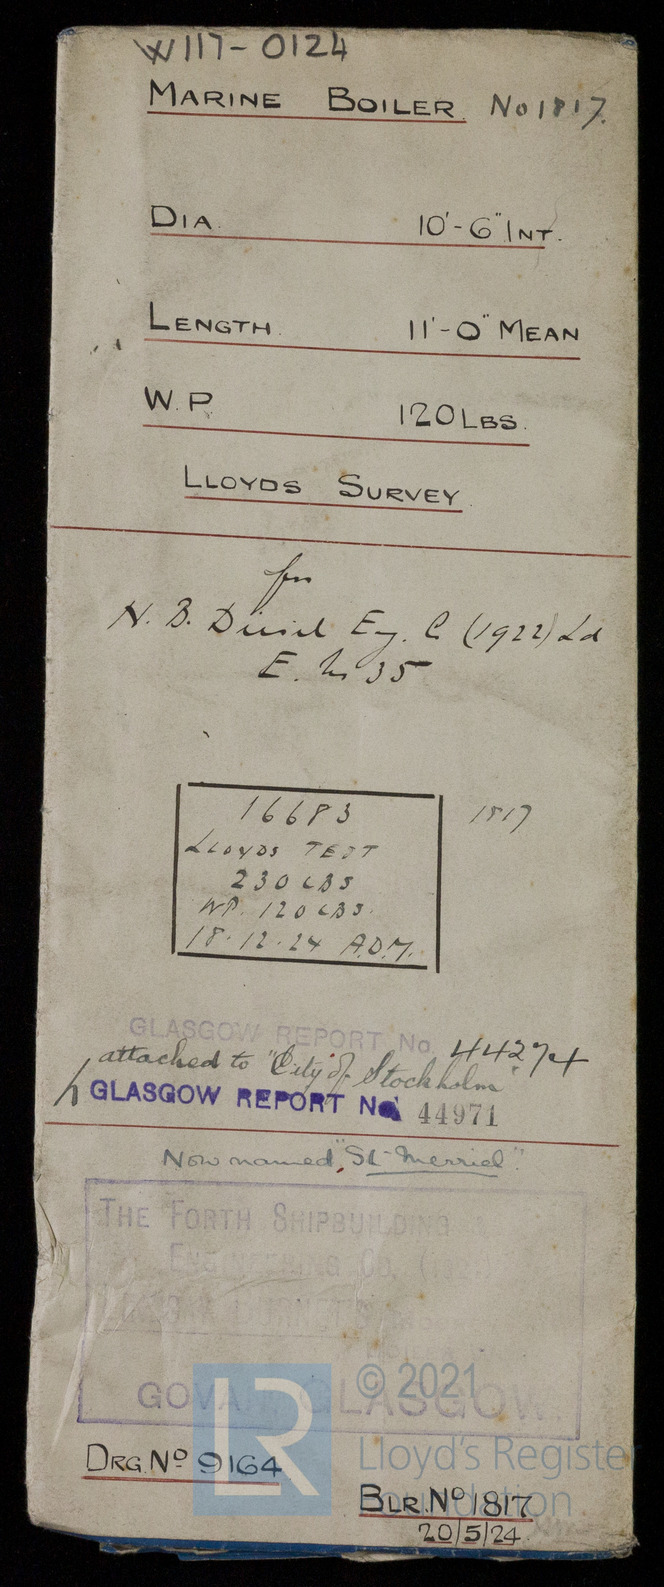 W117-0124
MARINE BOILER No 1817.
DIA. 10'-6" INT.
LENGTH. 11'-0" MEAN
W.P. 120 LBS.
LLOYDS SURVEY
for
N. B. Diesel Eng. C (1922) Ld
E. No 35
16683
1817
LLOYDS TEST
230 LBS
WP. 120 LBS.
18.12.24 A.D.M.
GLASGOW REPORT No. 44274
attached to "City of Stockholm"
GLASGOW REPORT No. 44971
Now named, "St Merriel".
THE FORTH SHIPBUILDING
ENGINEERING CO,
GOVAN, GLASGOW.
© 2021
LR
Lloyd's Register
Foundation
DRG. No 9164
BLR. No 1817
20/5/24